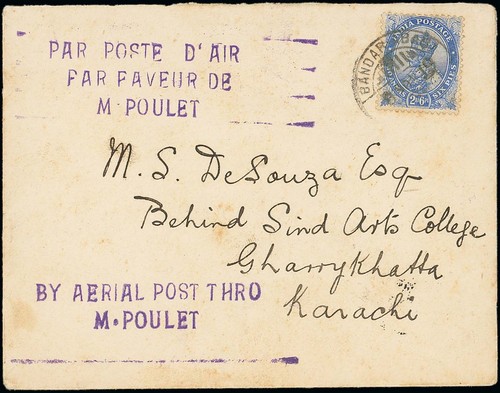 PAR POSTE D'AIR
FAR FAVEUR DE
M. POULET
INDIA POSTAGE
2As6Ps
SIX PIES
BANDAR
M. S. DeSouza Esq
Behind Sind Arts College
Gharrykhatta
Karachi
BY AERIAL POST THRO
M. POULET